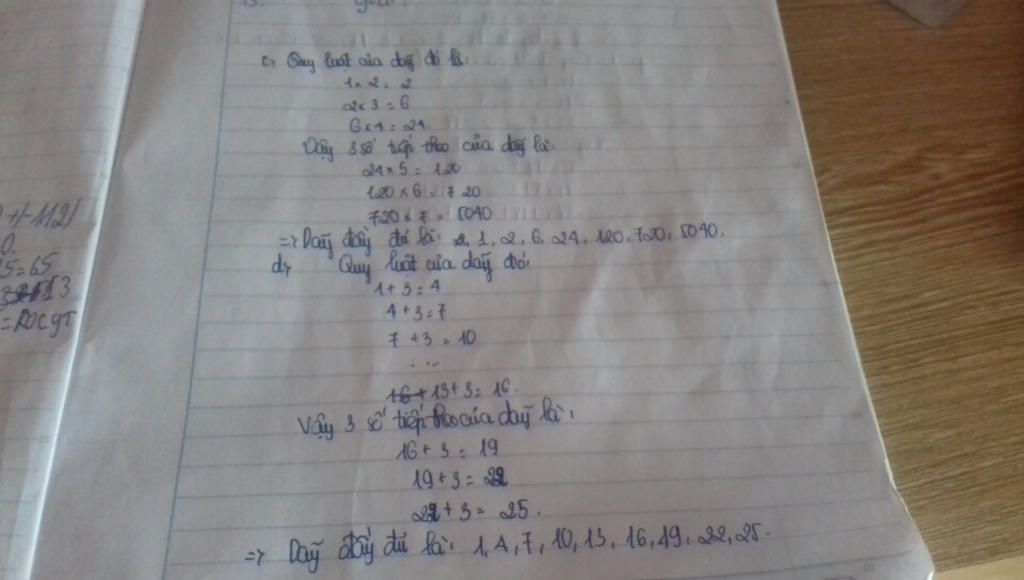 c, Quy luật của dãy đó là:
1 x 2 = 2
2 x 3 = 6
6 x 4 = 24.
Vậy 3 số tiếp theo của dãy là:
24 x 5 = 120
120 x 6 = 720
720 x 7 = 5040
=> Dãy đầy đủ là: 1, 2, 6, 24, 120, 720, 5040.
d, Quy luật của dãy đó:
1 + 3 = 4
4 + 3 = 7
7 + 3 = 10
...
13 + 3 = 16.
Vậy 3 số tiếp theo của dãy là:
16 + 3 = 19
19 + 3 = 22
22 + 3 = 25.
=> Dãy đầy đủ là: 1, 4, 7, 10, 13, 16, 19, 22, 25.